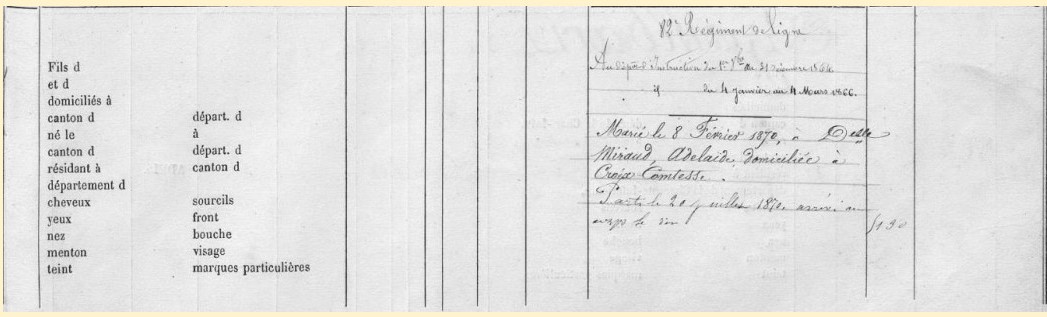 Fils d
et d
domiciliés à
canton d départ. d
né le à
canton d départ. d
résidant à canton d
département d
cheveux sourcils
yeux front
nez bouche
menton visage
teint marques particulières
82e Régiment de ligne
Au dépôt d'Instruction du 1er 9bre au 31 Décembre 1864
if du 4 Janvier au 4 Mars 1866.
Marié le 8 Février 1870, à Delle
Miraud, Adelaide, domiciliée à
Croix Comtesse.
Parti le 20 juillet 1870 arrivé au
corps le